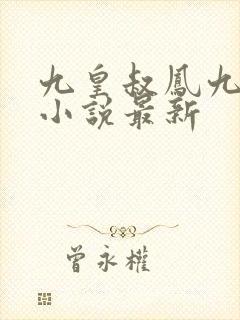 九皇叔鳳九
小說最新
曾永權